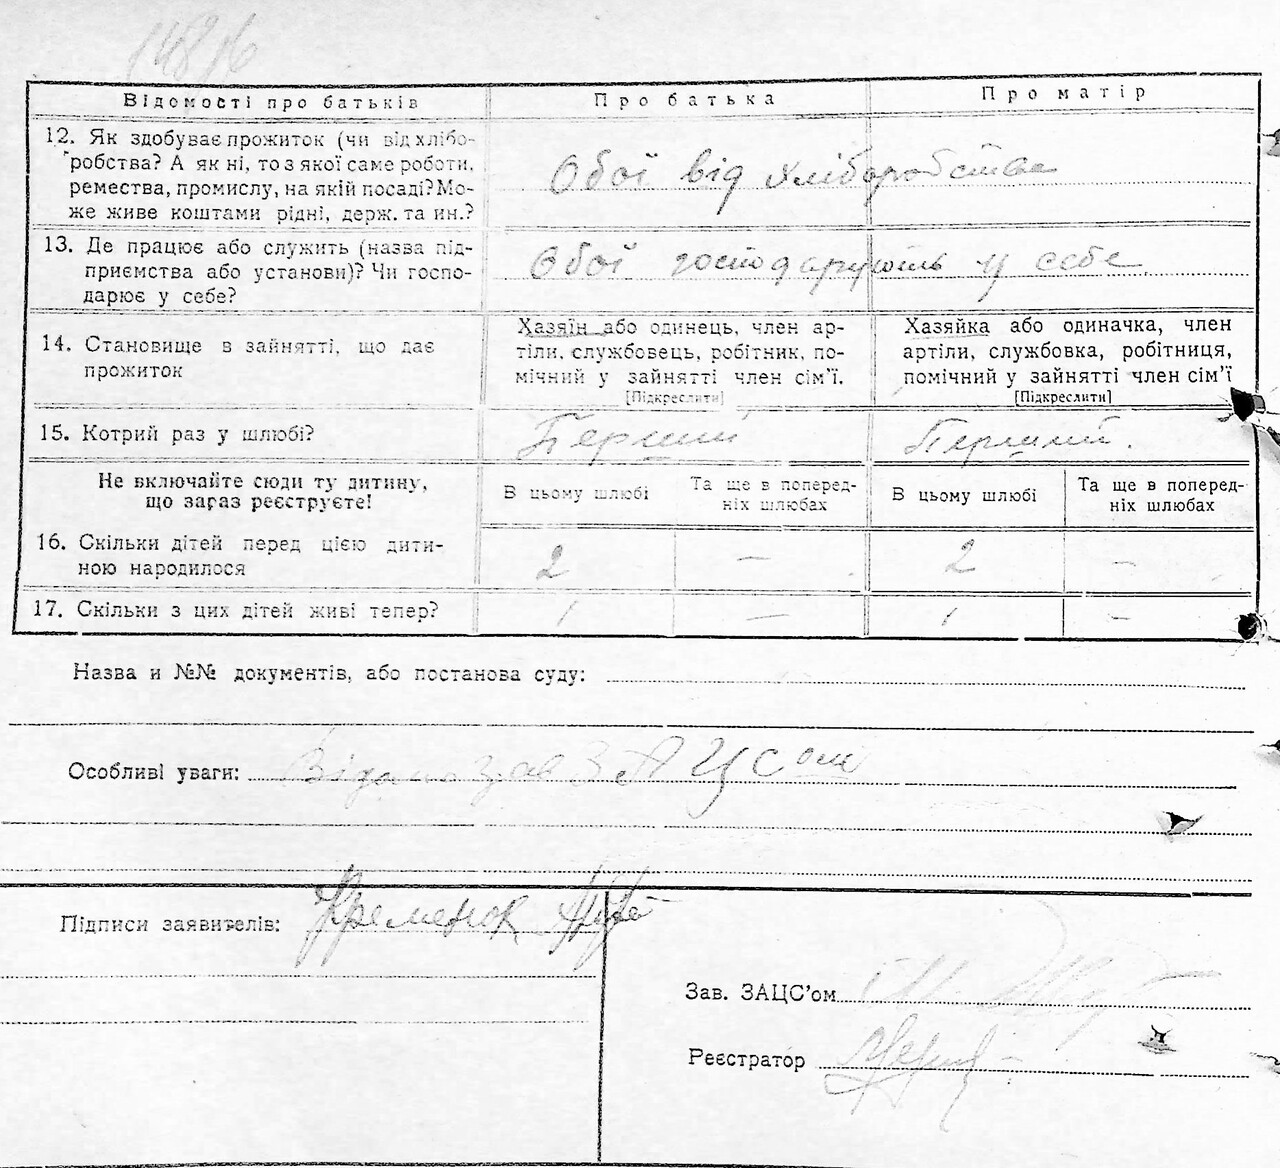 Відомості про батьків Про батька Про матір
12. Як здобуває прожиток (чи від хлібо-
робства? А як ні, то з якої саме роботи,
ремества, промислу, на якій посаді? Мо-
же живе коштами рідні, держ. та ин.?
Обої від хліборобства
13. Де працює або служить (назва під-
приємства або установи)? Чи госпо-
дарює у себе?
Обої господарують у себе
14. Становище в зайнятті, що дає
прожиток
Хазяїн або одинець, член ар-
тіли, службовець, робітник, по-
мічний у зайнятті член сім'ї.
[Підкреслити]
Хазяйка або одиначка, член
артіли, службовка, робітниця,
помічний у зайнятті член сім'ї
[Підкреслити]
15. Котрий раз у шлюбі? Перший Перший.
Не включайте сюди ту дитину,
що зараз реєструєте!
В цьому шлюбі
Та ще в поперед-
ніх шлюбах
В цьому шлюбі
Та ще в поперед-
ніх шлюбах
16. Скільки дітей перед цією дити-
ною народилося
2 — 2 —
17. Скільки з цих дітей живі тепер? 1 — 1 —
Назва и №№ документів, або постанова суду:
Особливі уваги: ЗАЦСом
Підписи заявителів: Кременюк
Зав. ЗАЦС'ом
Реєстратор